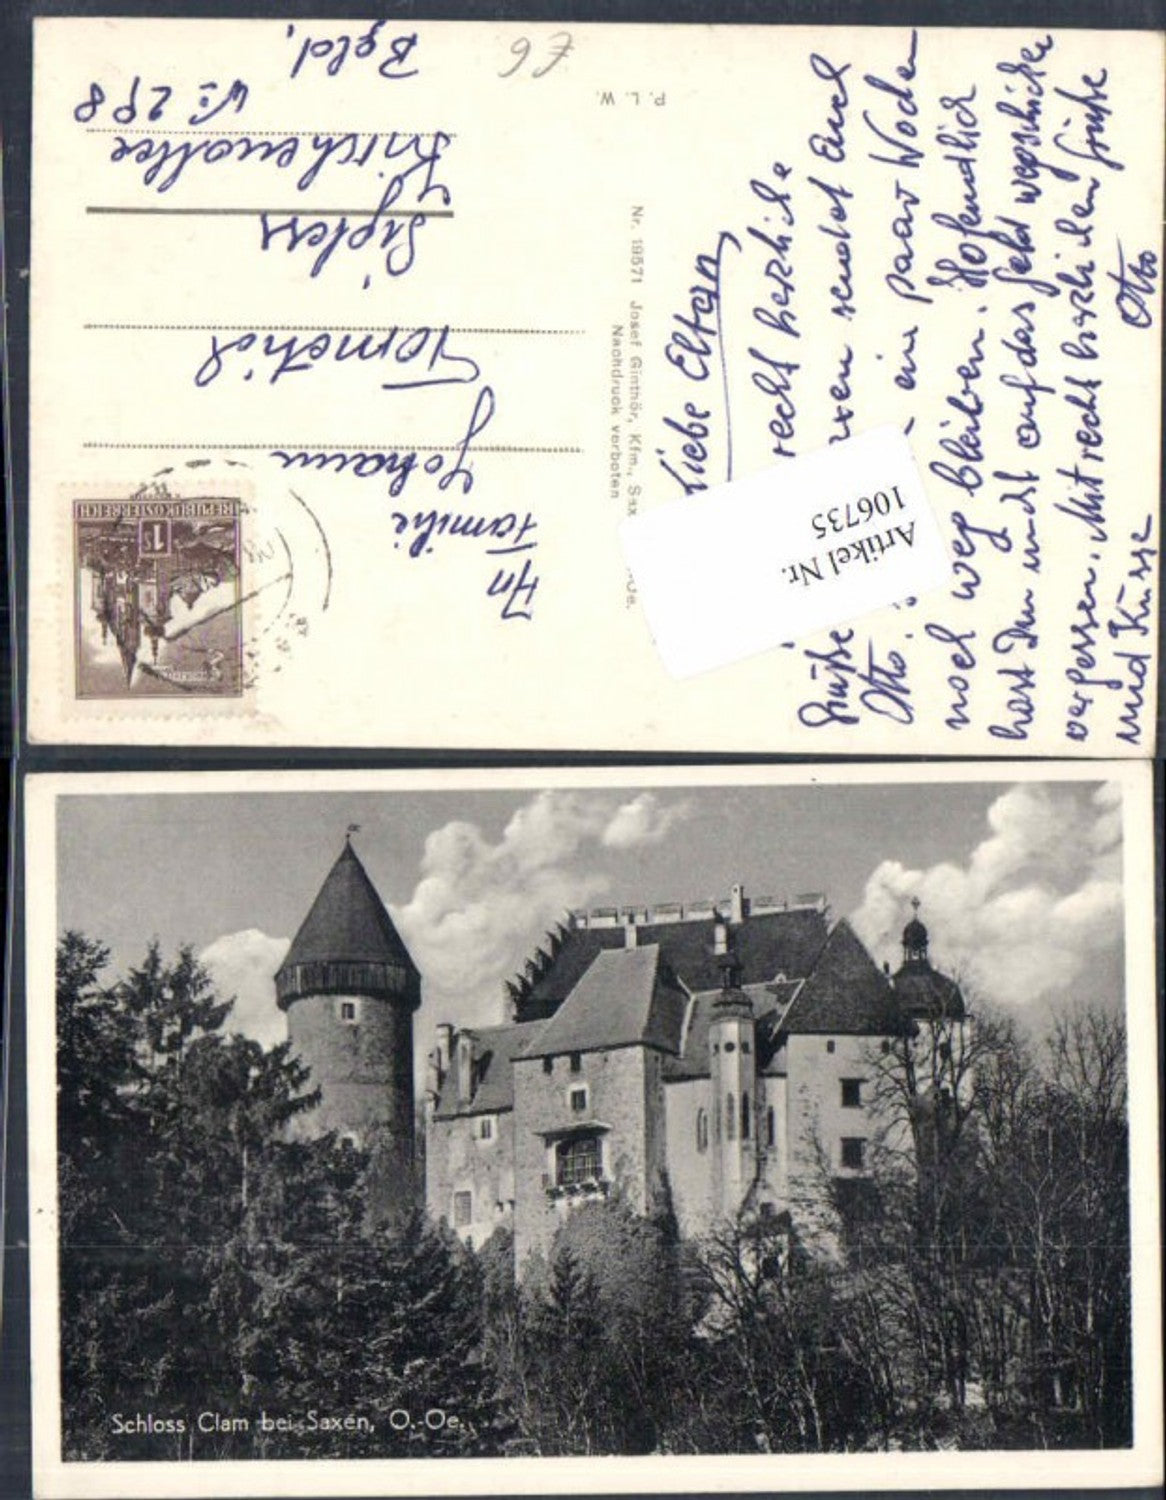 Liebe Eltern,
recht herzliche
Grüße sendet Euch
Otto. ein paar Wochen
noch weg bleiben. Hofendlich
hast Du nicht auf das Geld wegschicken
vergessen. Mit recht herzlichen Grüße
und Küsse Otto
P. L. W.
Nr. 19571 Josef Ginthör, Kfm., Sax
Nachdruck verboten
Artikel Nr.
106735
REPUBLIK ÖSTERREICH
1 S
An
Familie
Johann
Tometich
Sigless
Kirchenallee
No 298
Bgld,
£6
Schloss Clam bei Saxen, O.-Oe.